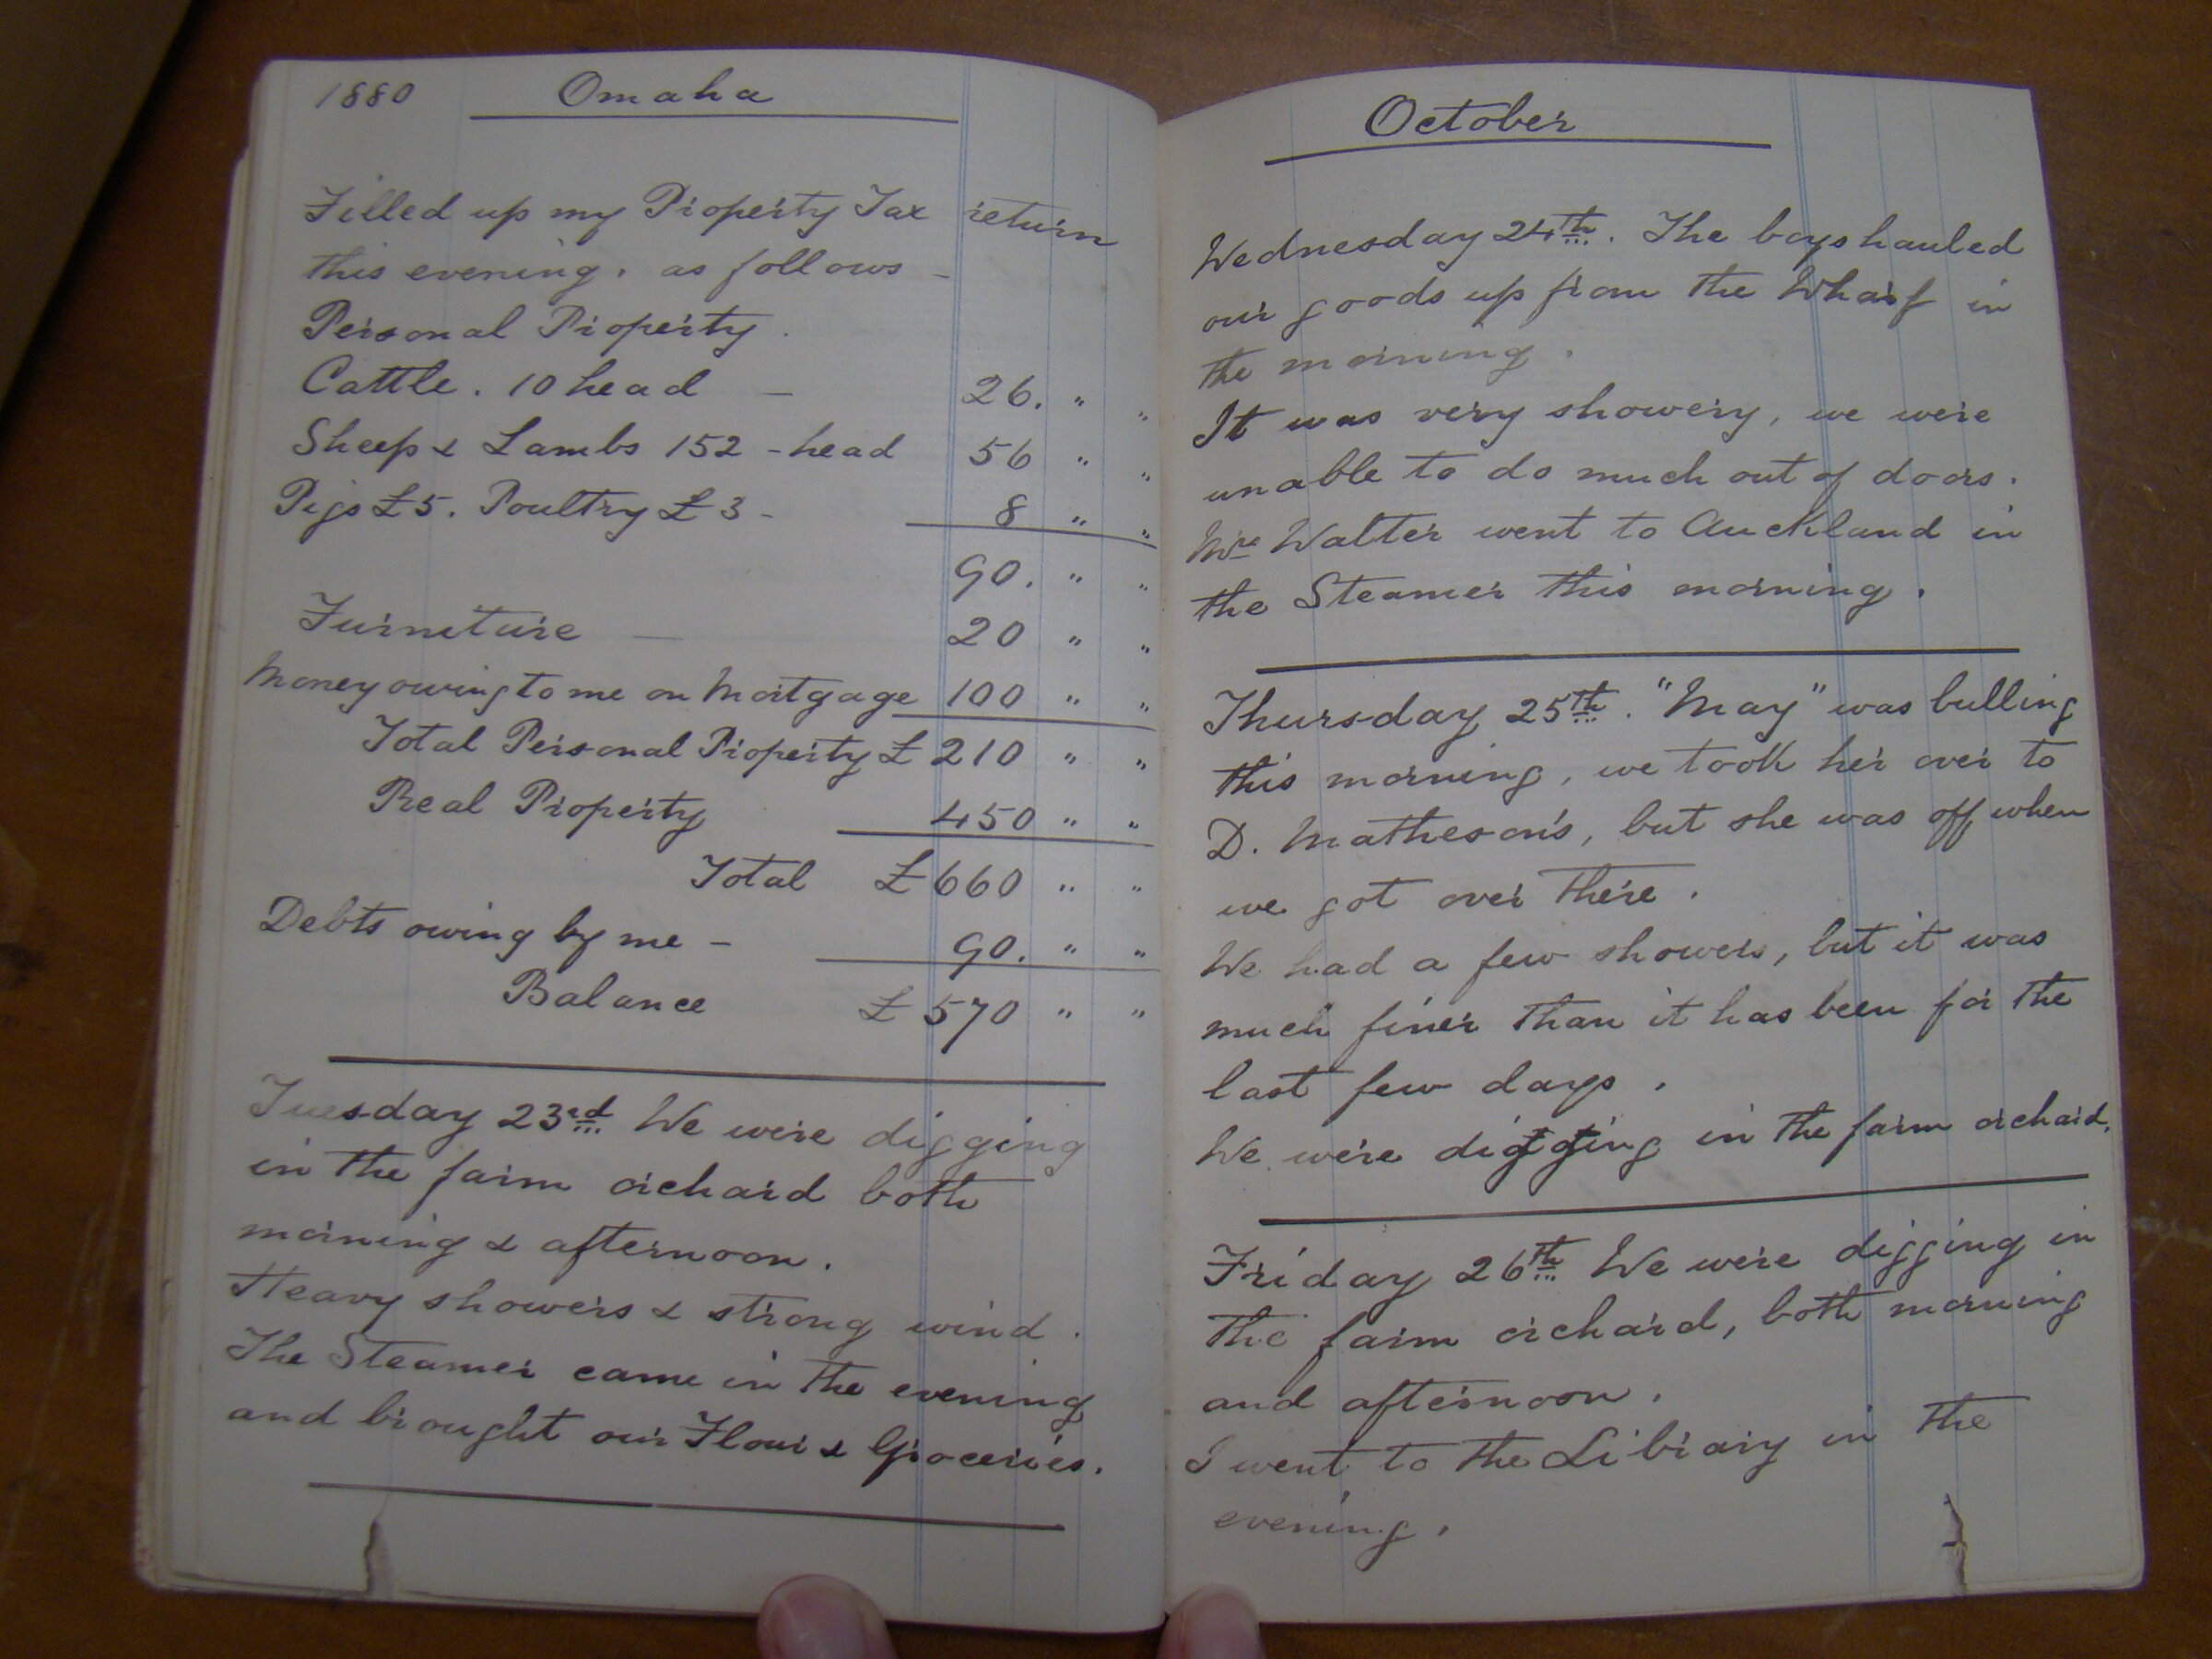 1880 Omaha
Filled up my Property Tax return
this evening. as follows -
Personal Property.
Cattle. 10 head - 26. " "
Sheep & Lambs 152 - head 56 " "
Pigs £5. Poultry £3 - 8 " "
90. " "
Furniture - 20 " "
Money owing to me on Mortgage 100 " "
Total Personal Property £ 210 " "
Real Property 450 " "
Total £ 660 " "
Debts owing by me - 90. " "
Balance £ 570 " "
Tuesday 23rd We were digging
in the farm orchard both
morning & afternoon.
Heavy showers & strong wind.
The Steamer came in the evening
and brought our Flour & Groceries.
October
Wednesday 24th. The boys hauled
our goods up from the Wharf in
the morning.
It was very showery, we were
unable to do much out of doors.
Mrs Walter went to Auckland in
the Steamer this morning.
Thursday 25th. "May" was bulling
this morning, we took her over to
D. Matheson's, but she was off when
we got over there.
We had a few showers, but it was
much finer than it has been for the
last few days.
We were digging in the farm orchard.
Friday 26th We were digging in
the farm orchard, both morning
and afternoon.
I went to the Library in the
evening.